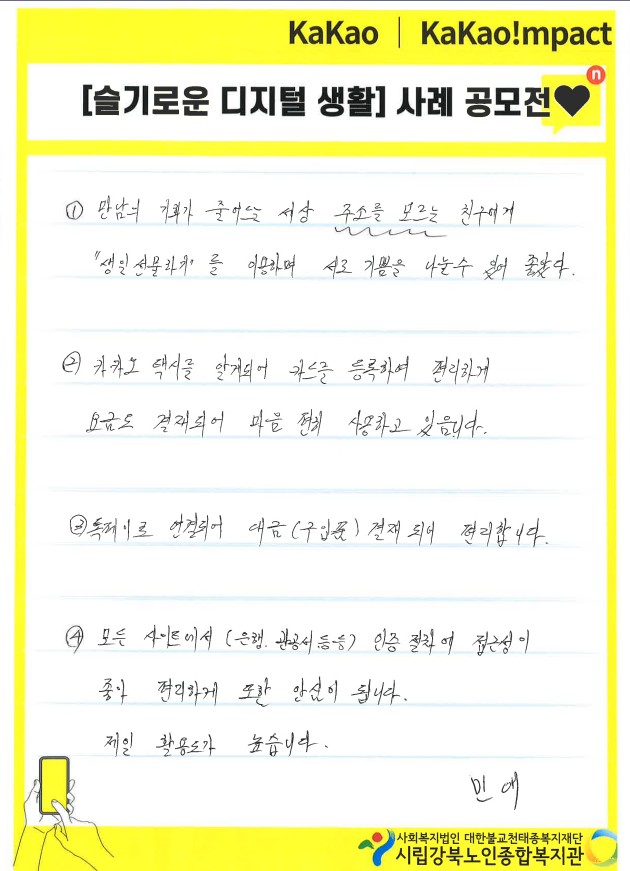 KaKao | KaKao!mpact
n
[슬기로운 디지털 생활] 사례 공모전
① 만남의 기회가 줄어드는 세상 주소를 모르는 친구에게
"생일선물하기"를 이용하며 서로 기쁨을 나눌수 있어 좋았다.
② 카카오 택시를 알게되어 카드를 등록하여 편리하게
요금도 결재되어 마음 편히 사용하고 있습니다.
③ 톡페이로 연결되어 대금(구입품) 결재 되니 편리합니다.
④ 모든 사이트에서 (은행. 관공서.등등) 인증 절차에 접근성이
좋아 편리하게 또한 안심이 됩니다.
제일 활용도가 높습니다.
민애
사회복지법인 대한불교천태종복지재단
시립강북노인종합복지관